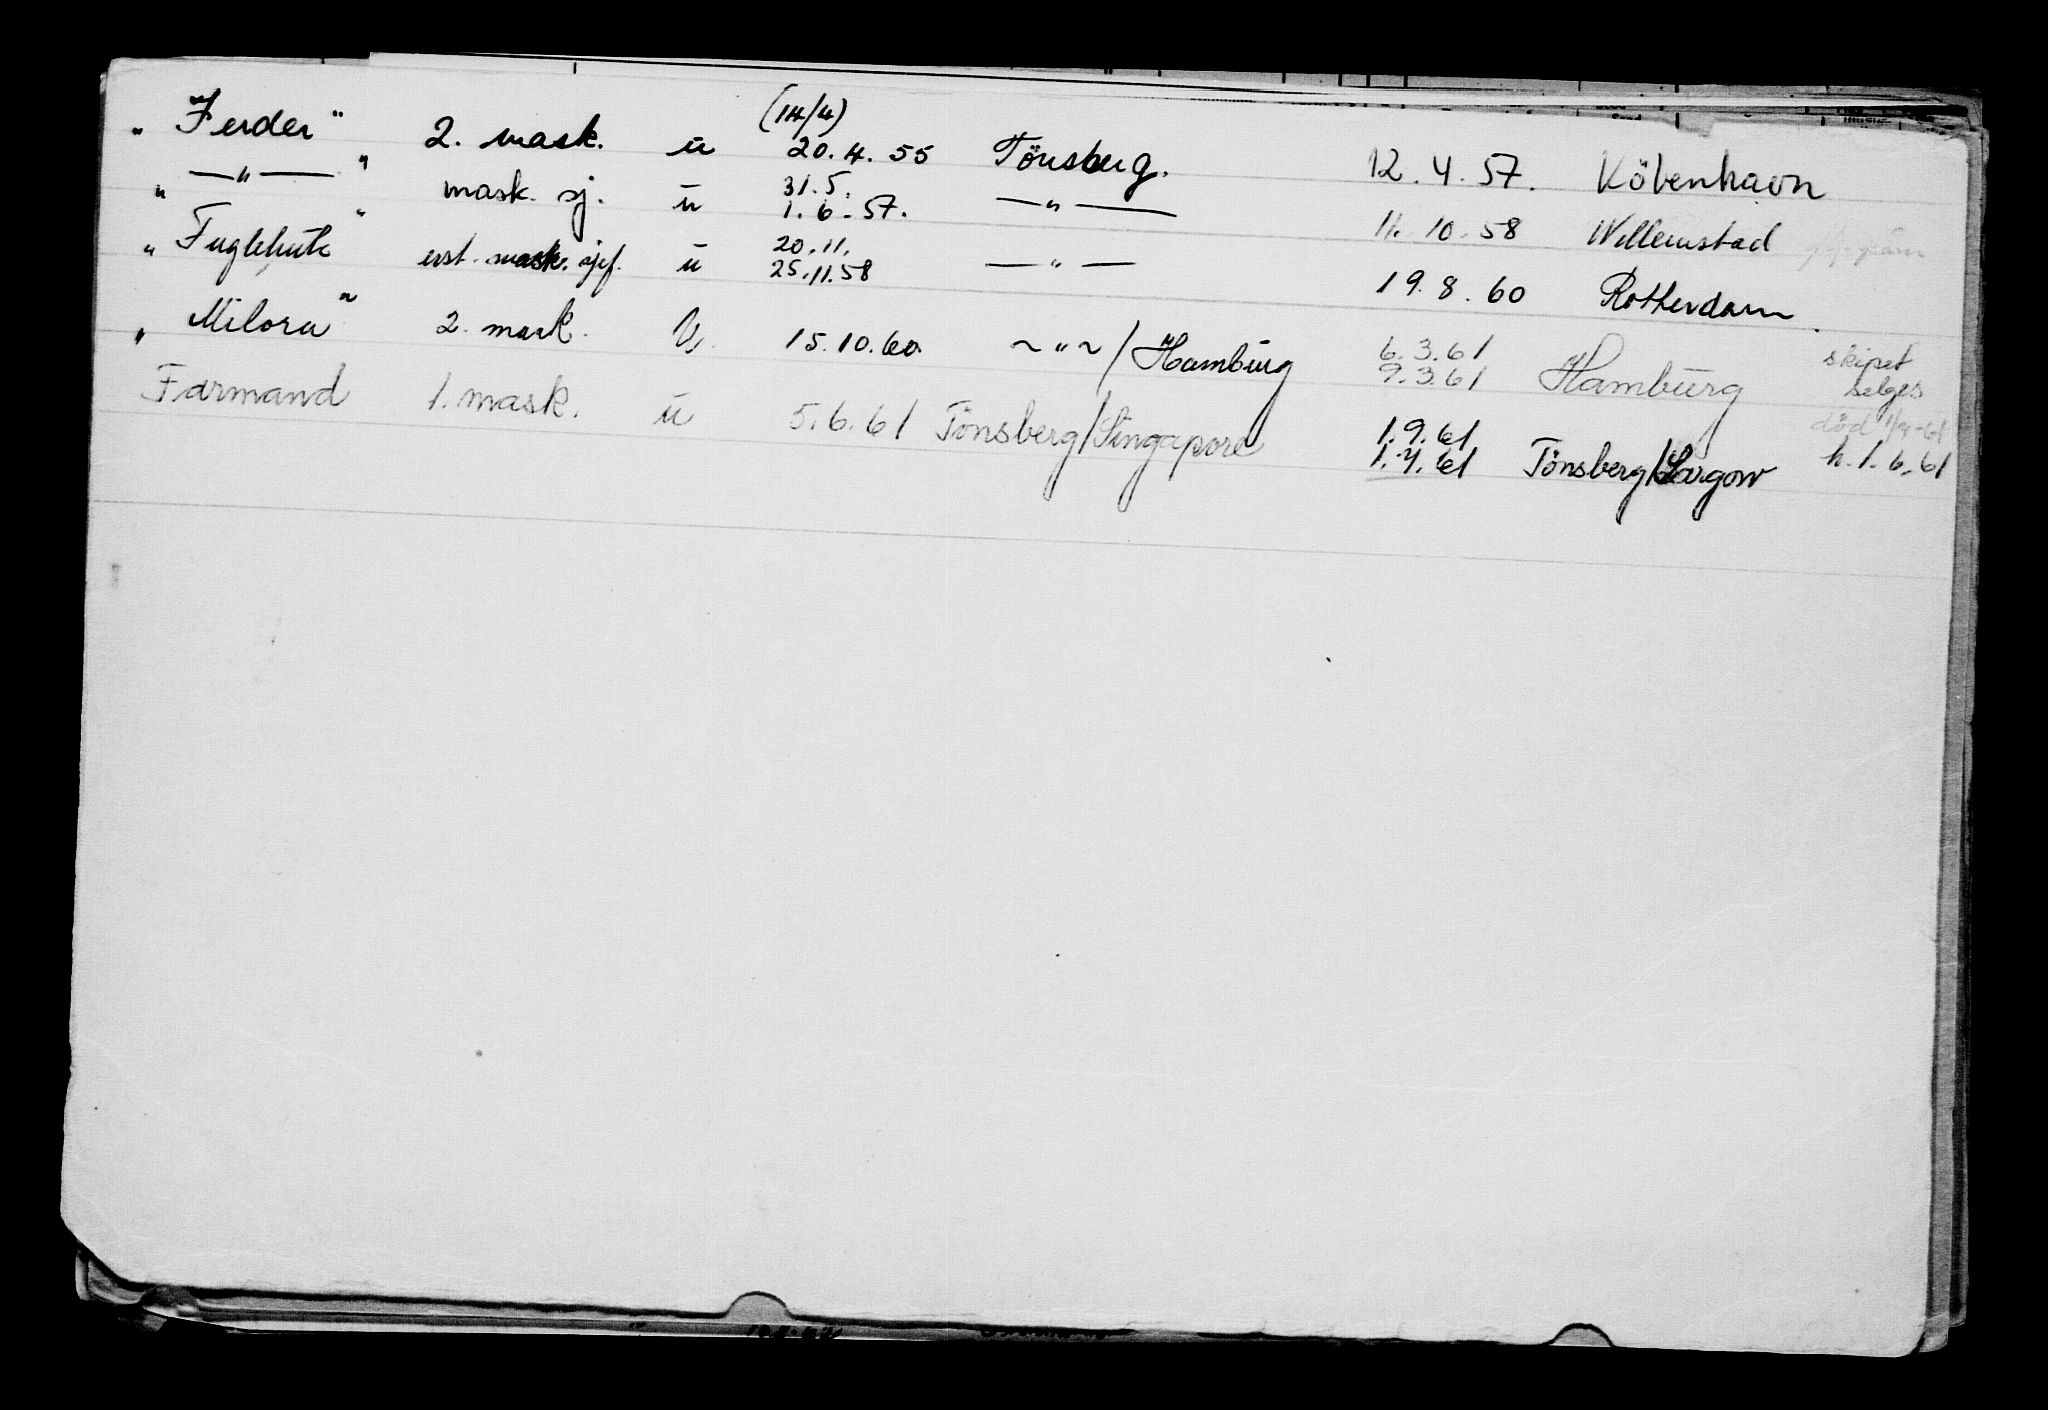 (14/4)
„ Ferder “ 2. mask. u 20.4.55 Tönsberg. 12.4.57. Köbenhavn
„ — “ — “ mask. sj. u 31.5. 1.6.57. — “ — 11.10.58 Willemstad
„ Fuglehute “ erst. mask. sjef. u 20.11. 25.11.58 — “ — 19.8.60 Rotterdam
„ Milora “ 2. mask. U. 15.10.60. ~ “ ~ / Hamburg 6.3.61 9.3.61 Hamburg skipet selges
Farmand 1. mask. u 5.6.61 Tönsberg/Singapore 1.9.61 1.4.61 Tönsberg/ död 1/4-61 h.1.6.61